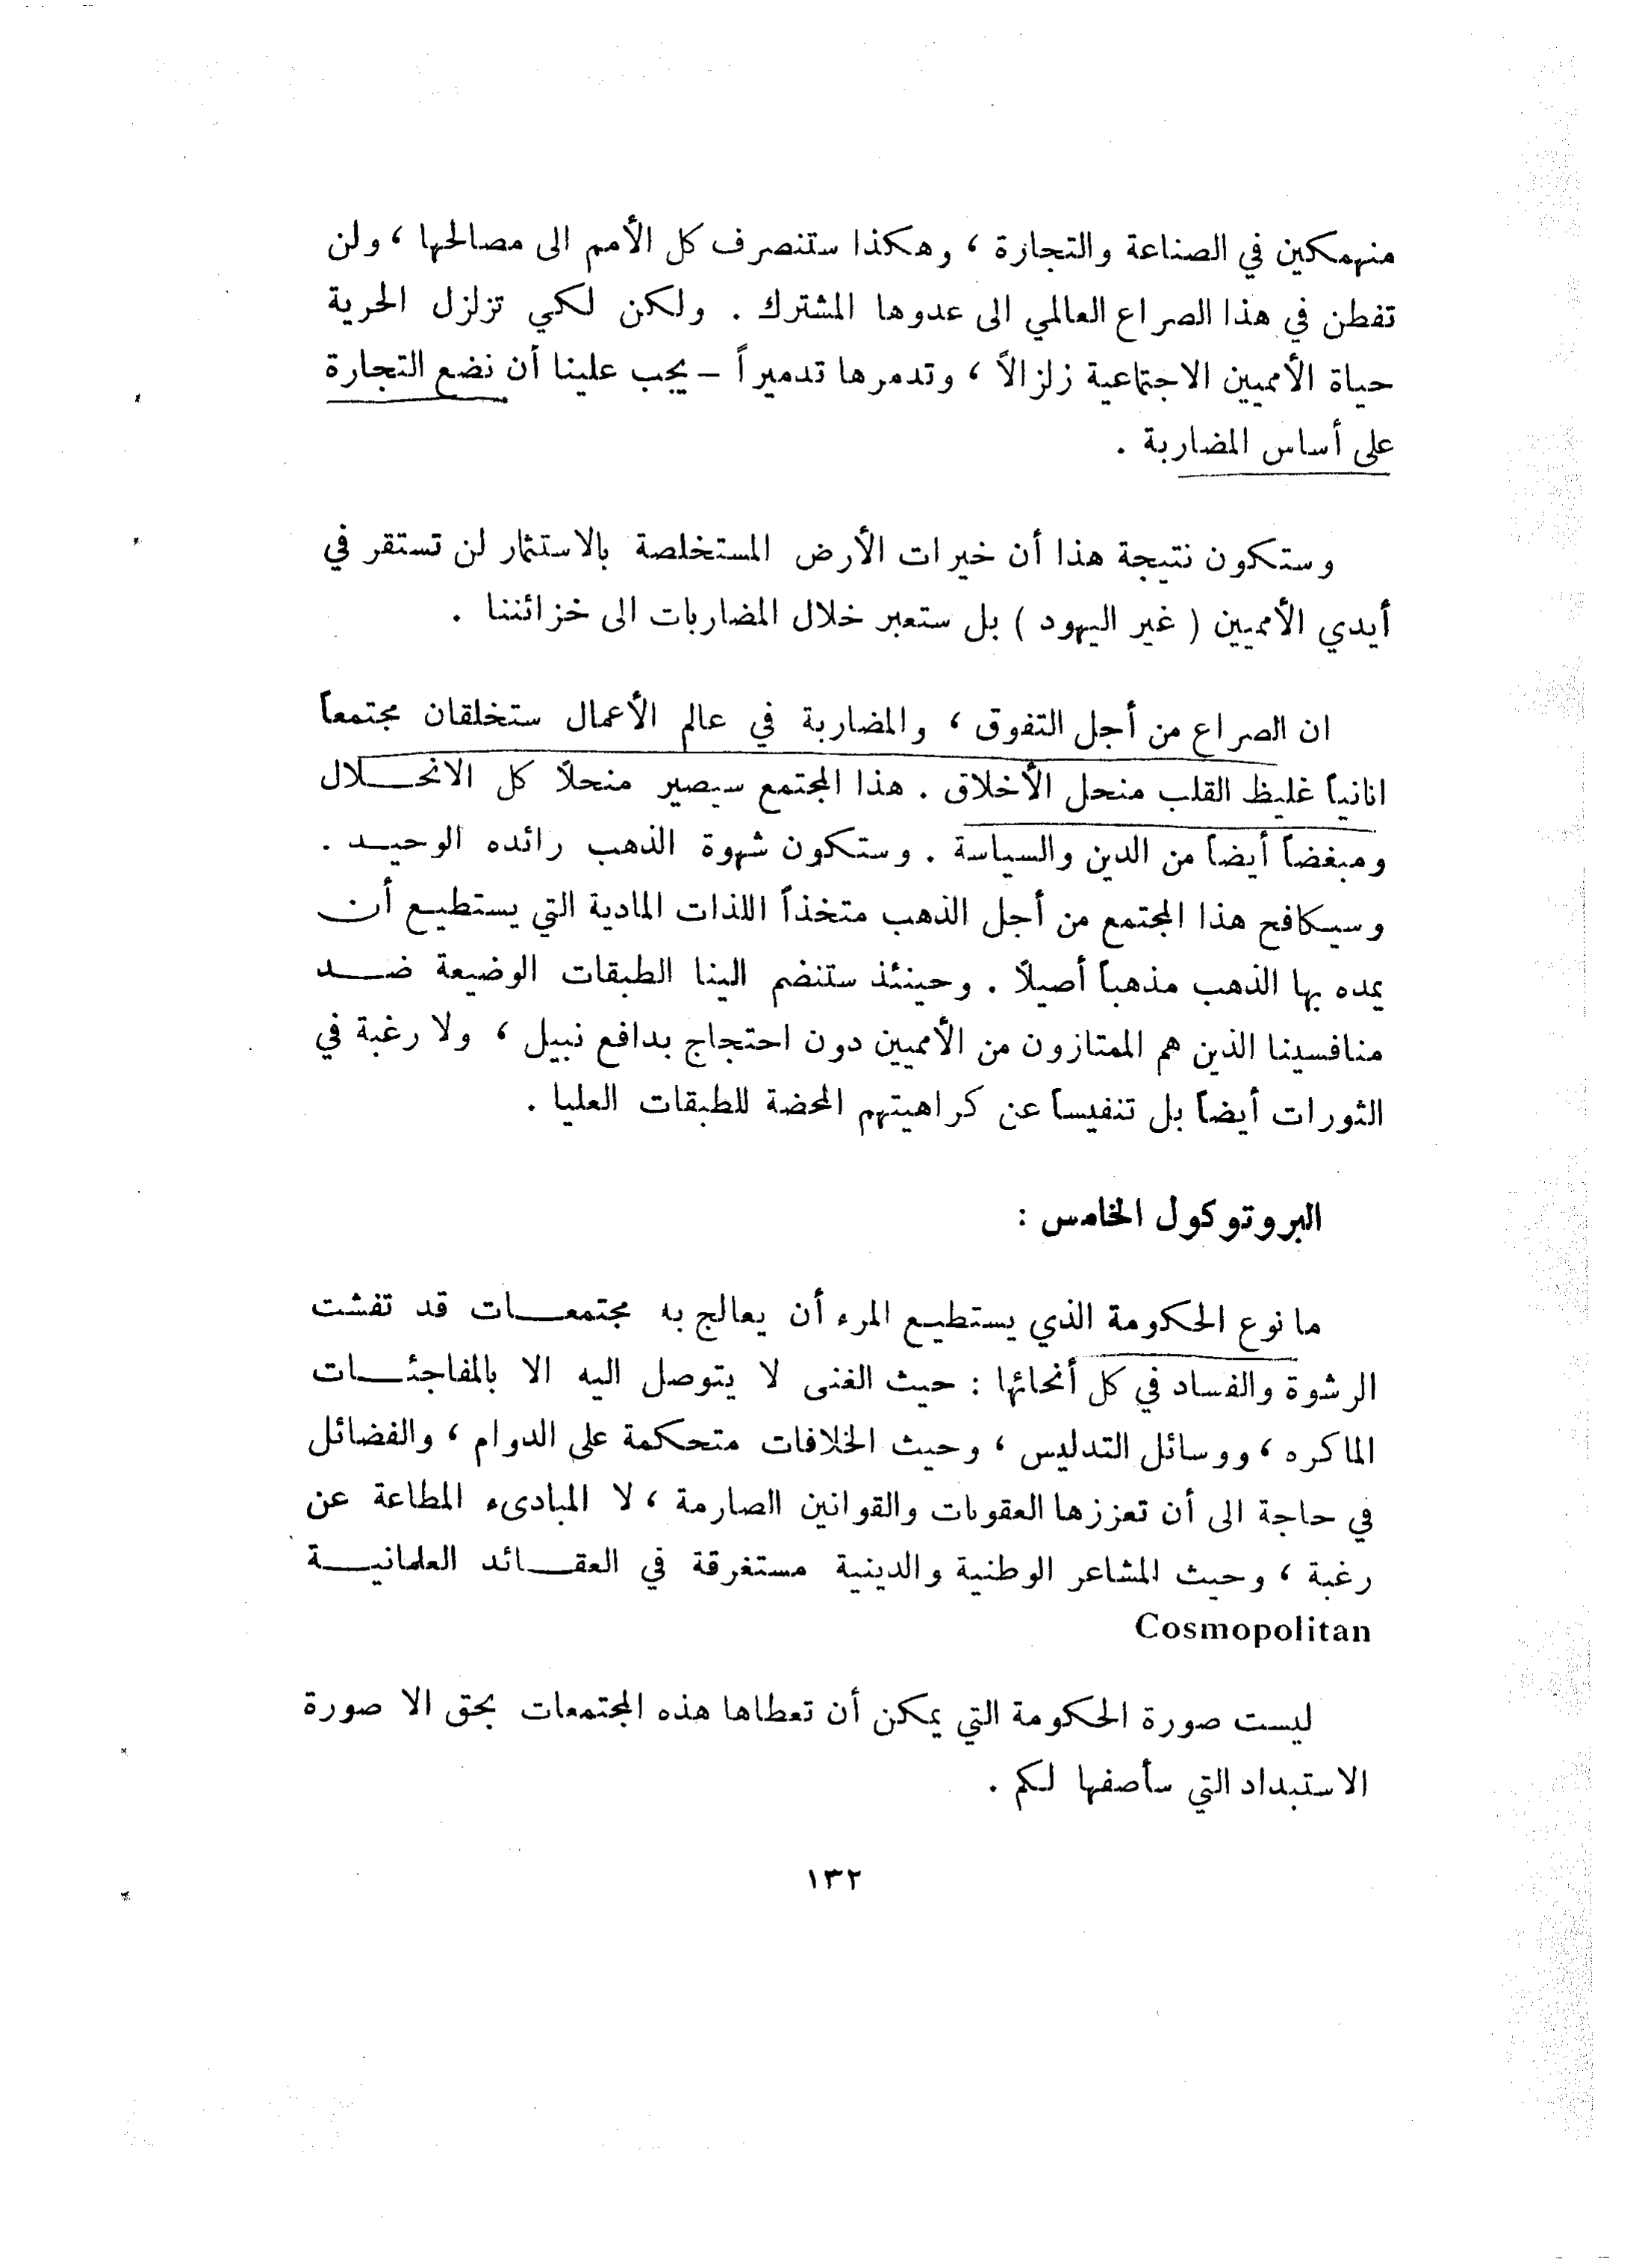 منهمكين في الصناعة والتجارة ، وهكذا ستنصرف كل الأمم الى مصالحها ، ولن
تفطن في هذا الصراع العالمي الى عدوها المشترك . ولكن لكي تزلزل الحرية
حياة الأمميين الاجتماعية زلزالاً ، وتدمرها تدميراً – يجب علينا أن نضع التجارة
على أساس المضاربة .
وستكون نتيجة هذا أن خيرات الأرض المستخلصة بالاستثمار لن تستقر في
أيدي الأمميين ( غير اليهود ) بل ستعبر خلال المضاربات الى خزائننا .
ان الصراع من أجل التفوق ، والمضاربة في عالم الأعمال ستخلقان مجتمعاً
انانياً غليظ القلب منحل الأخلاق . هذا المجتمع سيصير منحلاً كل الانحلال
ومبغضاً أيضاً من الدين والسياسة . وستكون شهوة الذهب رائده الوحيد .
وسيكافح هذا المجتمع من أجل الذهب متخذاً اللذات المادية التي يستطيع أن
يمده بها الذهب مذهباً أصيلاً . وحينئذ ستنضم الينا الطبقات الوضيعة ضد
منافسينا الذين هم الممتازون من الأمميين دون احتجاج بدافع نبيل ، ولا رغبة في
الثورات أيضاً بل تنفيساً عن كراهيتهم المحضة للطبقات العليا .
البروتوكول الخامس :
ما نوع الحكومة الذي يستطيع المرء أن يعالج به مجتمعات قد تفشت
الرشوة والفساد في كل أنحائها : حيث الغنى لا يتوصل اليه الا بالمفاجئات
الماكره ، ووسائل التدليس ، وحيث الخلافات متحكمة على الدوام ، والفضائل
في حاجة الى أن تعززها العقوبات والقوانين الصارمة ، لا المبادىء المطاعة عن
رغبة ، وحيث المشاعر الوطنية والدينية مستغرقة في العقائد العلمانية
Cosmopolitan
ليست صورة الحكومة التي يمكن أن تعطاها هذه المجتمعات بحق الا صورة
الاستبداد التي سأصفها لكم .
١٣٢